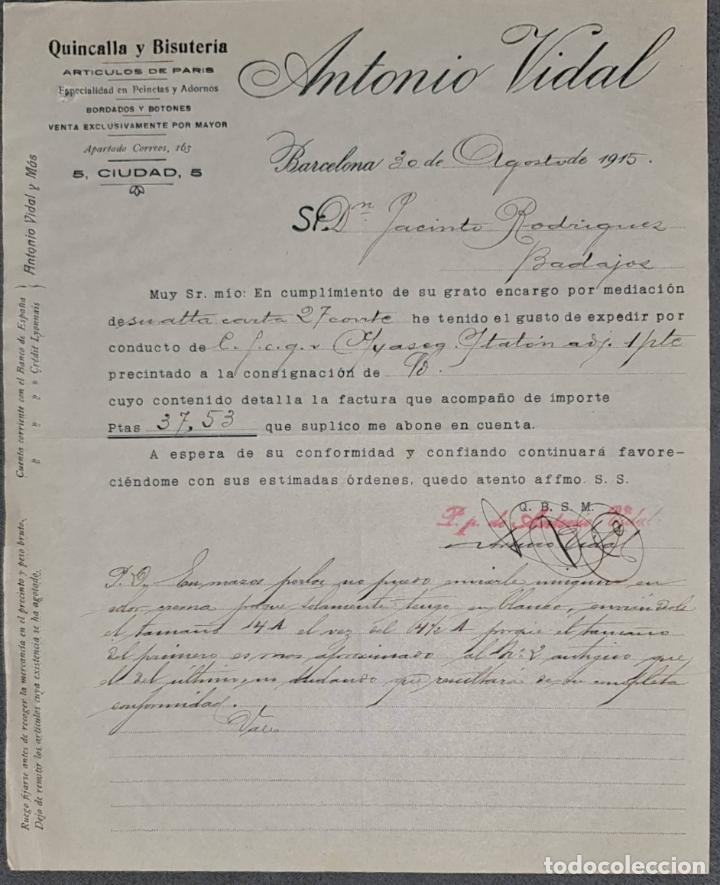 Quincalla y Bisutería
ARTICULOS DE PARIS
Especialidad en Peinetas y Adornos
BORDADOS Y BOTONES
VENTA EXCLUSIVAMENTE POR MAYOR
Apartado Correos, 163
5, CIUDAD, 5
Antonio Vidal
Barcelona 30 de Agosto de 1915.
Sr. Dn. Jacinto Rodriguez
Badajos
Muy Sr. mío: En cumplimiento de su grato encargo por mediación
de su atta carta 27 corrte he tenido el gusto de expedir por
conducto de
precintado a la consignación de
cuyo contenido detalla la factura que acompaño de importe
Ptas 37,53 que suplico me abone en cuenta.
A espera de su conformidad y confiando continuará favore-
ciéndome con sus estimadas órdenes, quedo atento affmo. S. S.
Q. B. S. M.
P. p. de Antonio Vidal
P.D. En mazos perlas no puedo enviarle ninguno en
color crema porque solamente tengo en blanco, enviándole
el tamaño 14 A el vez del 14½ A porque el tamaño
del primero es mas aproximado al Nº 2 antiguo que
el del último, no dudando que resultará de su completa
conformidad.
Vale
Cuenta corriente con el Banco de España } Antonio Vidal y Mós
» » » » Crédit Lyonnais
Ruego fijarse antes de recoger la mercancía en el precinto y peso bruto.
Dejo de remitir los artículos cuya existencia se ha agotado.
todocoleccion
todocoleccion.net